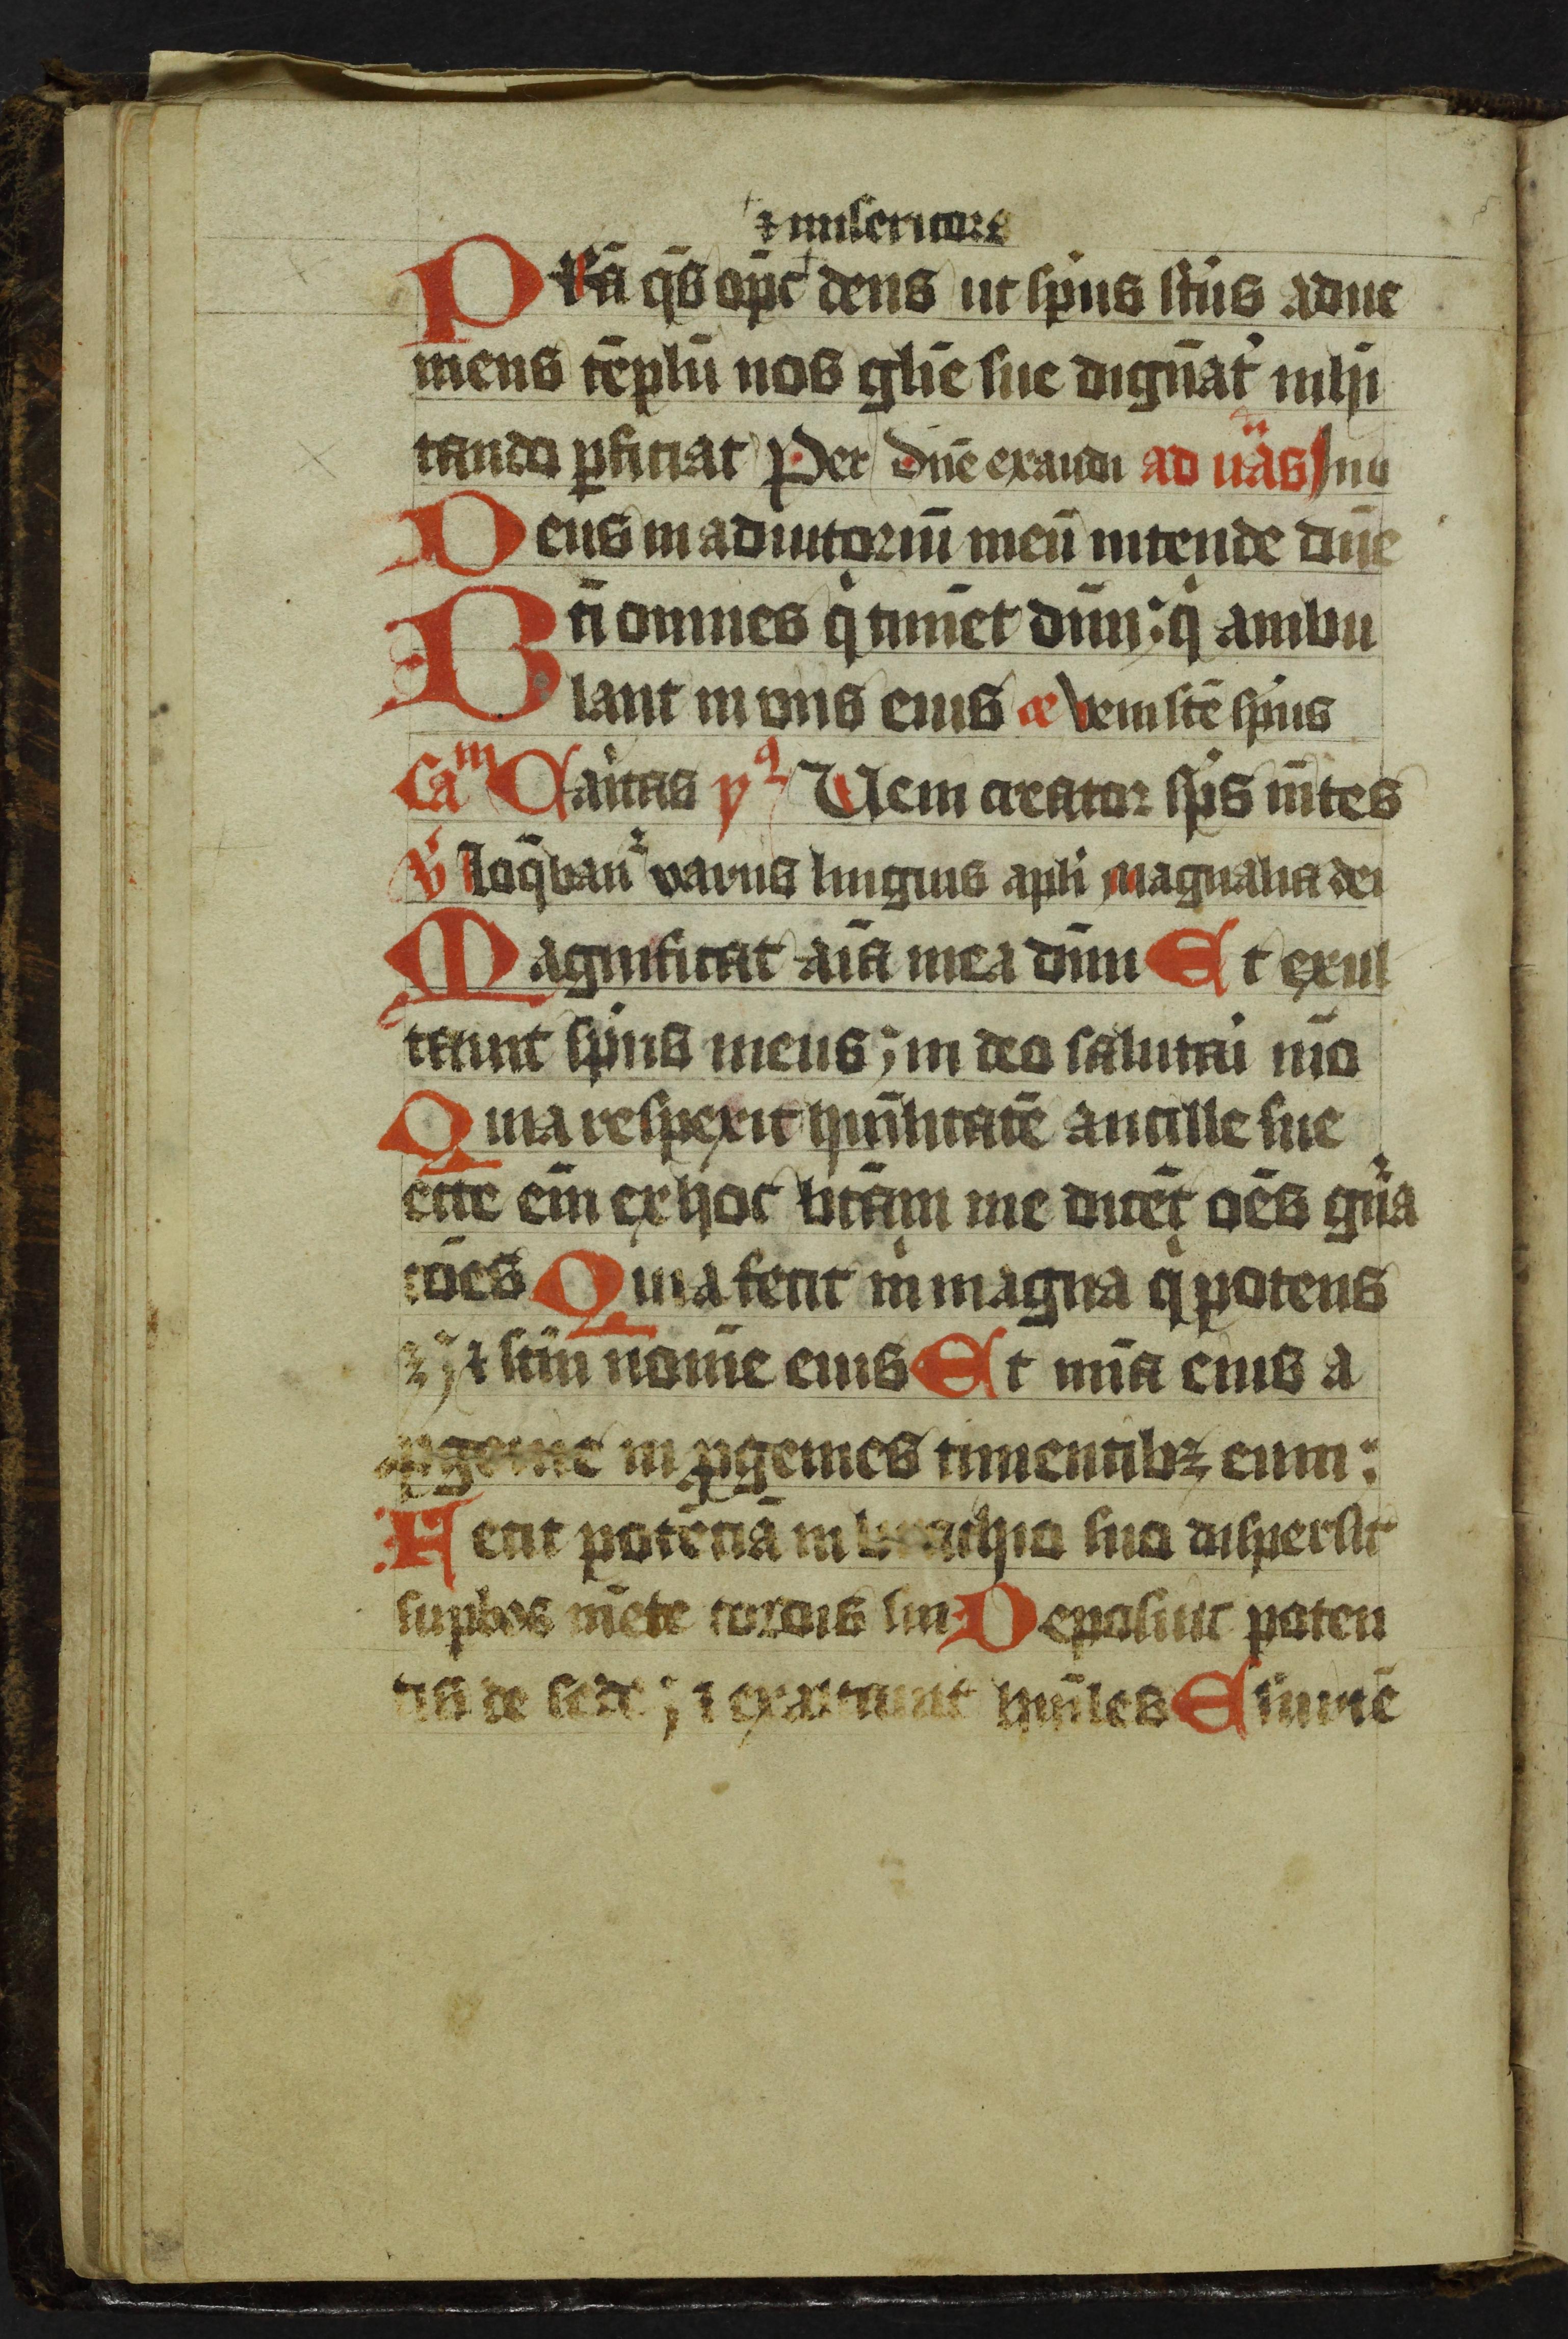 ⁊ misericors
Pͬsta q̄s op̄ꝰ deus ut sp̄us sc̄us adue
niens tēplū nos gl̄ie sue dignāt᷑ inhi
tando ꝑficiat Per Dn̄e exaudi ad uās Ino
Deus in adiutoriū meū intende dn̄e
Bt̄i omnes qͥ timēt dn̄m: qͥ ambu
lant in viis eius ꝶ Veni sc̄e sp̄us
Caᵐ Caritas ẏᵃ Veni creator sp̄s mētes
v̓ loq̄banͬ variis linguis apl̄i magnalia dei
Magnificat aīa mea dn̄m Et exul
tauit sp̄us meus; in deo salutaͥ mō
Quia respexit hūilitatē ancille sue
ecce em̄ ex hoc bt̄am me dicēt oēs gn̄a
cōes Quia fecit mͥ magna qͥ potens
ē; ⁊ sc̄m nomē eius Et mīa eius a
ꝓgenie in ꝓgenies timentibꝫ eum:
Fecit potēciā in brachio suo dispersit
suꝑbos mēte cordis sui Deposuit poten
tes de sede; ⁊ exaltauit hūiles Esuriē